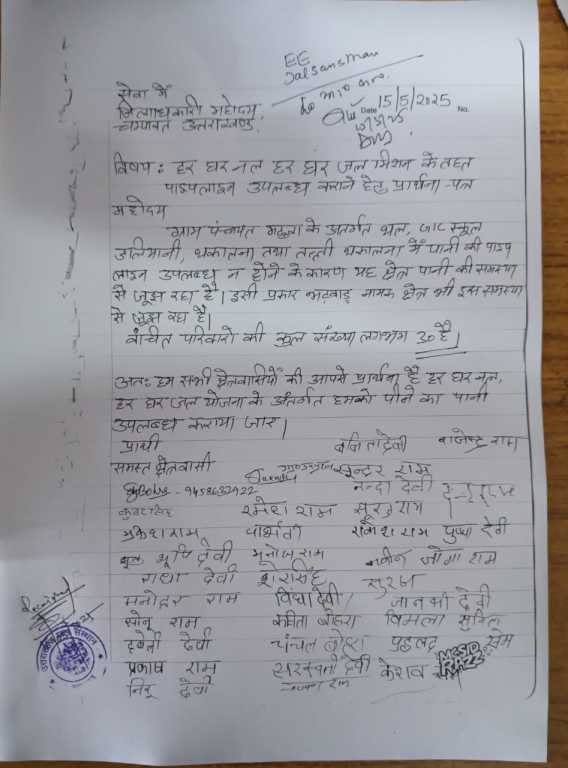 EE
Jal Sansthan
सेवा में
जिलाधिकारी महोदय,
चम्पावत उत्तराखण्ड.
Date 15/5/2025 No.
DM
विषय: हर घर नल हर घर जल मिशन के तहत
पाइपलाइन उपलब्ध कराने हेतु प्रार्थना-पत्र
महोदय
ग्राम पंचायत के अन्तर्गत थल, GIC स्कूल
थकालना तथा तल्ली थकालना में पानी की पाइप
लाइन उपलब्ध न होने के कारण यह क्षेत्र पानी की समस्या
से जूझ रहा है। इसी प्रकार नामक क्षेत्र भी इस समस्या
से जूझ रहा है।
वंचित परिवारों की कुल संख्या लगभग 30 है।
अतः हम सभी क्षेत्रवासियों की आपसे प्रार्थना है हर घर नल,
हर घर जल योजना के अंतर्गत हमको पीने का पानी
उपलब्ध कराया जाए।
प्रार्थी
समस्त क्षेत्रवासी
राजेन्द्र राम
सुन्दर राम
9458632922 नन्दा देवी
रमेश राम सूरज राम
मुकेश राम पार्वती राकेश राम पुष्पा देवी
देवी मनोज राम जोगा राम
राधा देवी शेरसिंह सूरज
मनोहर राम विद्या देवी जानकी देवी
सोनू राम कविता बोहरा विमला सुनिल
देवी चंचल बोहरा राम
प्रकाश राम सरस्वती देवी केशव
देवी
Received